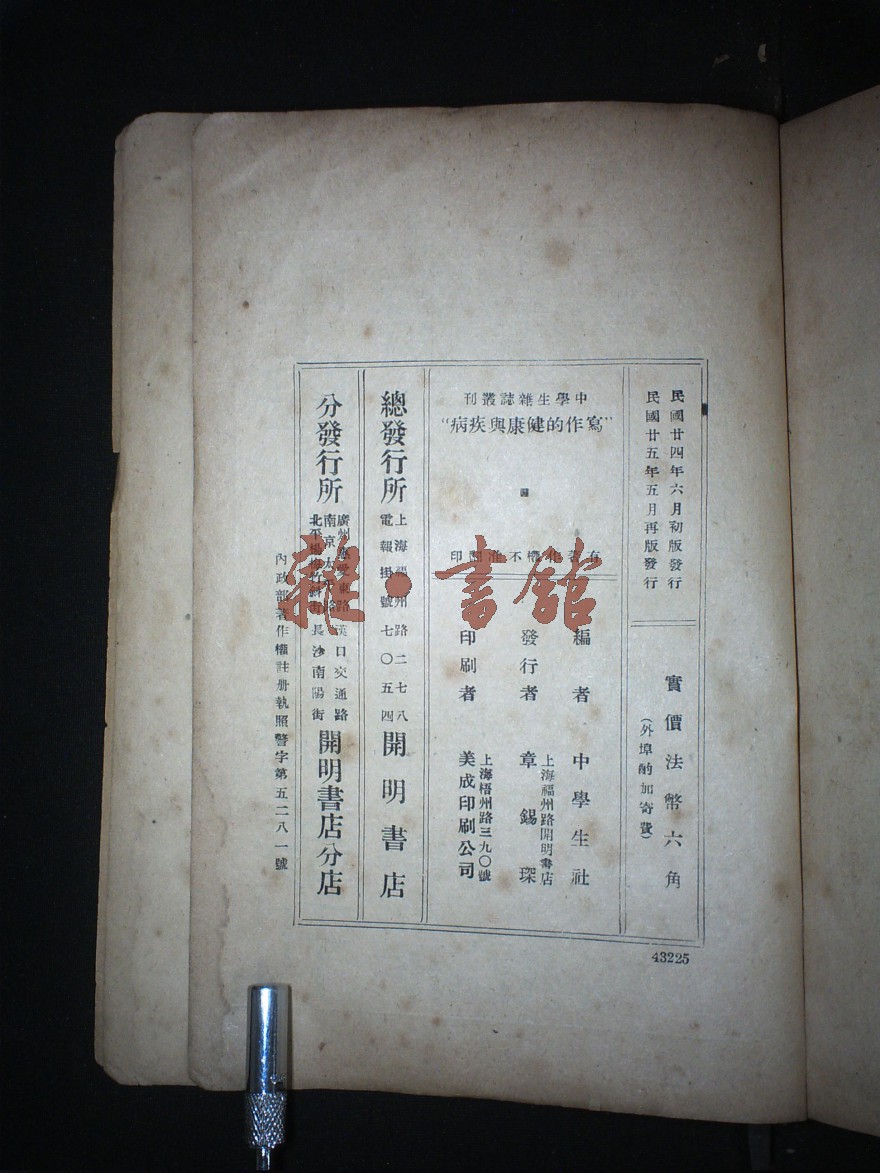 民國廿四年六月初版發行
民國廿五年五月再版發行
實價法幣六角
（外埠酌加寄費）
中學生雜誌叢刊
"寫作的健康與疾病"
有著作權不准翻印
編者 中學生社
發行者 章錫琛
上海福州路開明書店
印刷者 美成印刷公司
上海梧州路三九〇號
總發行所
上海福州路二七八
電報掛號七〇五四
開明書店
分發行所
廣州惠愛東路 漢口交通路
南京太平路
北平楊梅竹斜街 長沙南陽街
開明書店分店
內政部著作權註册執照警字第五二八一號
43225
雜·書館